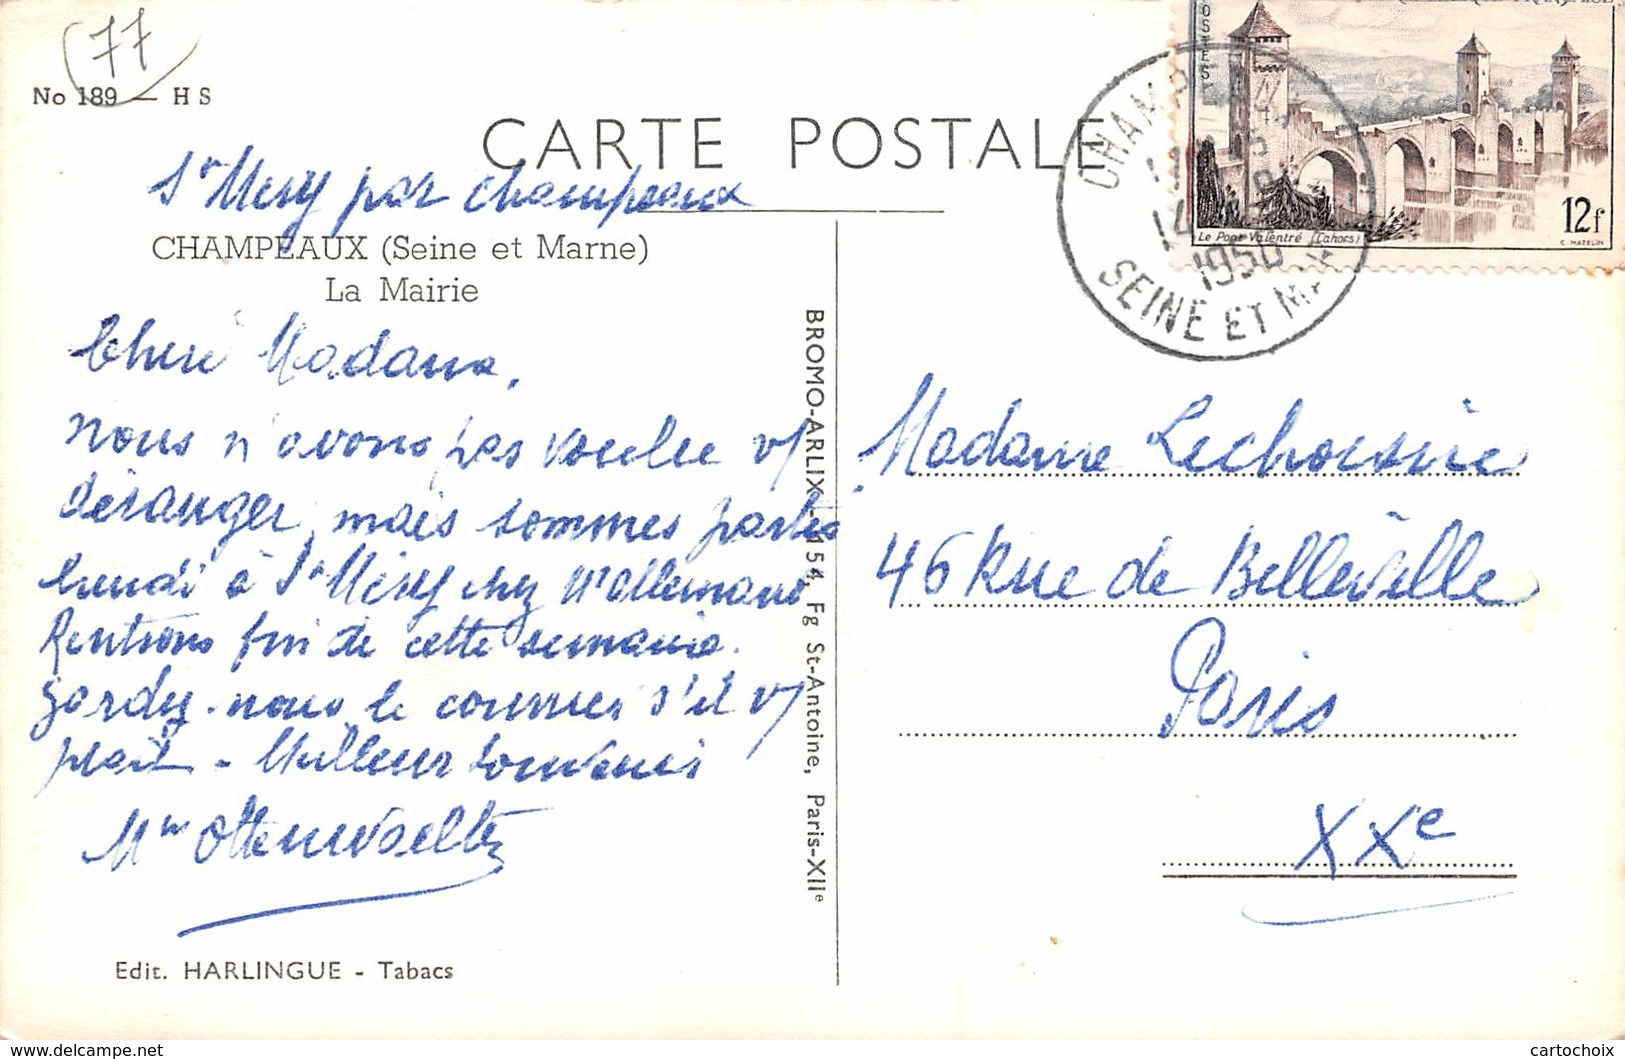 77
No 189 — H S
CARTE POSTALE
St Mery par Champeaux
CHAMPEAUX (Seine et Marne)
La Mairie
Chere Madame,
nous n'avons pas voulu v/
déranger, mais sommes partis
Lundi à St Méry chez
Rentrons fin de cette semaine.
gardez-nous le courrier s'il v/
plait - Meilleur souvenir
Mme
Edit. HARLINGUE - Tabacs
BROMO-ARLIX - 154, Fg St-Antoine, Paris-XIIe
POSTES
Le Pont Valentré (Cahors)
12f
C. MAZELIN
CHAMP
14
SEINE ET M
Madame
46 Rue de Belleville
Paris
XXe
http://www.delcampe.net
cartochoix